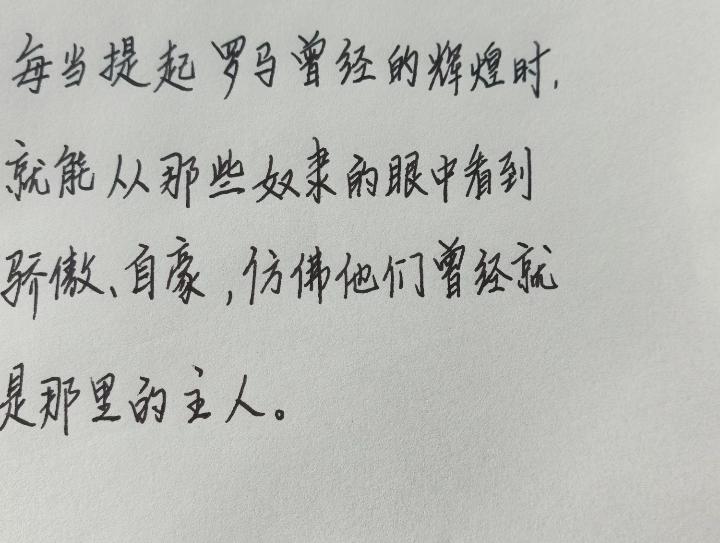 每当提起罗马曾经的辉煌时,
就能从那些奴隶的眼中看到
骄傲、自豪,仿佛他们曾经就
是那里的主人。